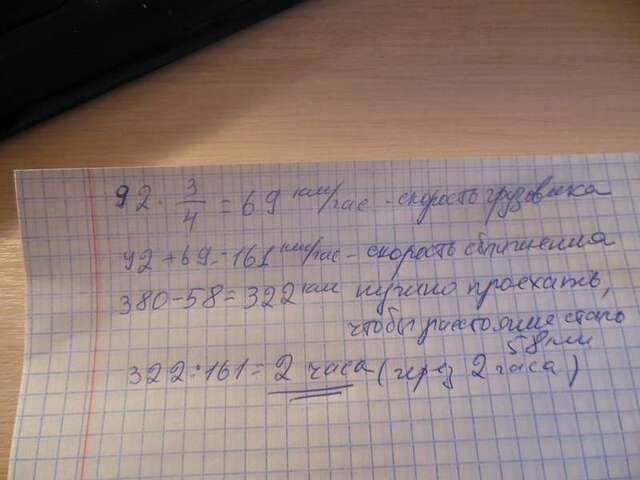 92 · 3/4 = 69 км/час - скорость грузовика
92 + 69 = 161 км/час - скорость сближения
380 - 58 = 322 км нужно проехать,
чтобы расстояние стало
58 км
322 : 161 = 2 часа (через 2 часа)